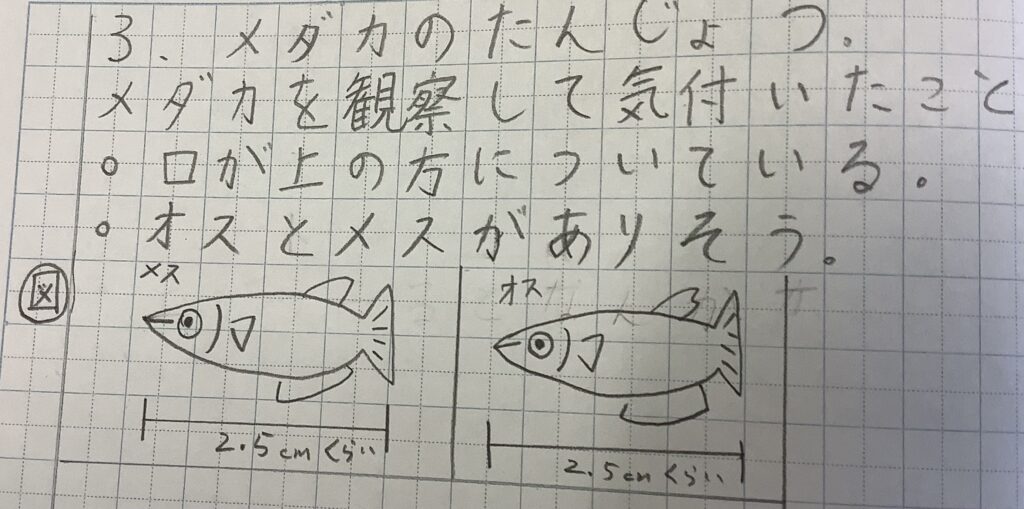 3. メダカのたんじょう.
メダカを観察して気付いたこと
○ 口が上の方についている。
○ オスとメスがありそう。
図
メス
オス
2.5cmくらい
2.5cmくらい